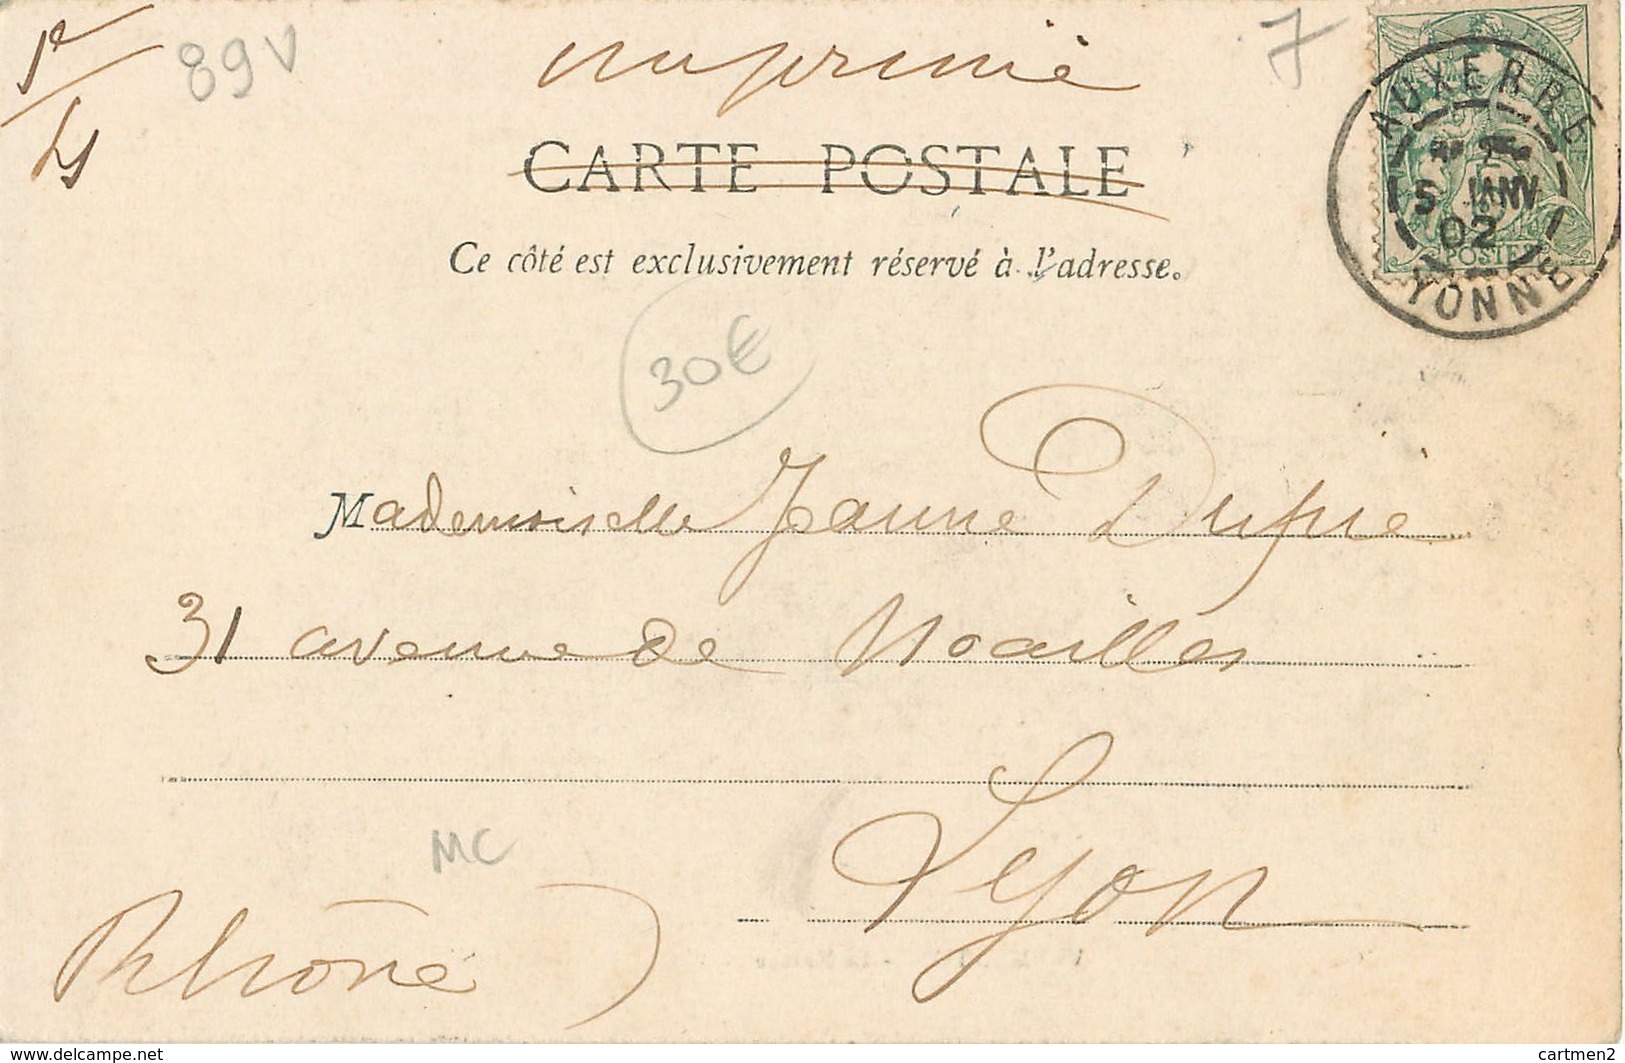 89 V
imprimé
7
CARTE POSTALE
Ce côté est exclusivement réservé à l'adresse.
AUXERRE
5 JANV
02
YONNE
POSTES
30€
Mademoiselle Jeanne
31 avenue de Noailles
MC
Lyon
Rhône
www.delcampe.net
cartmen2